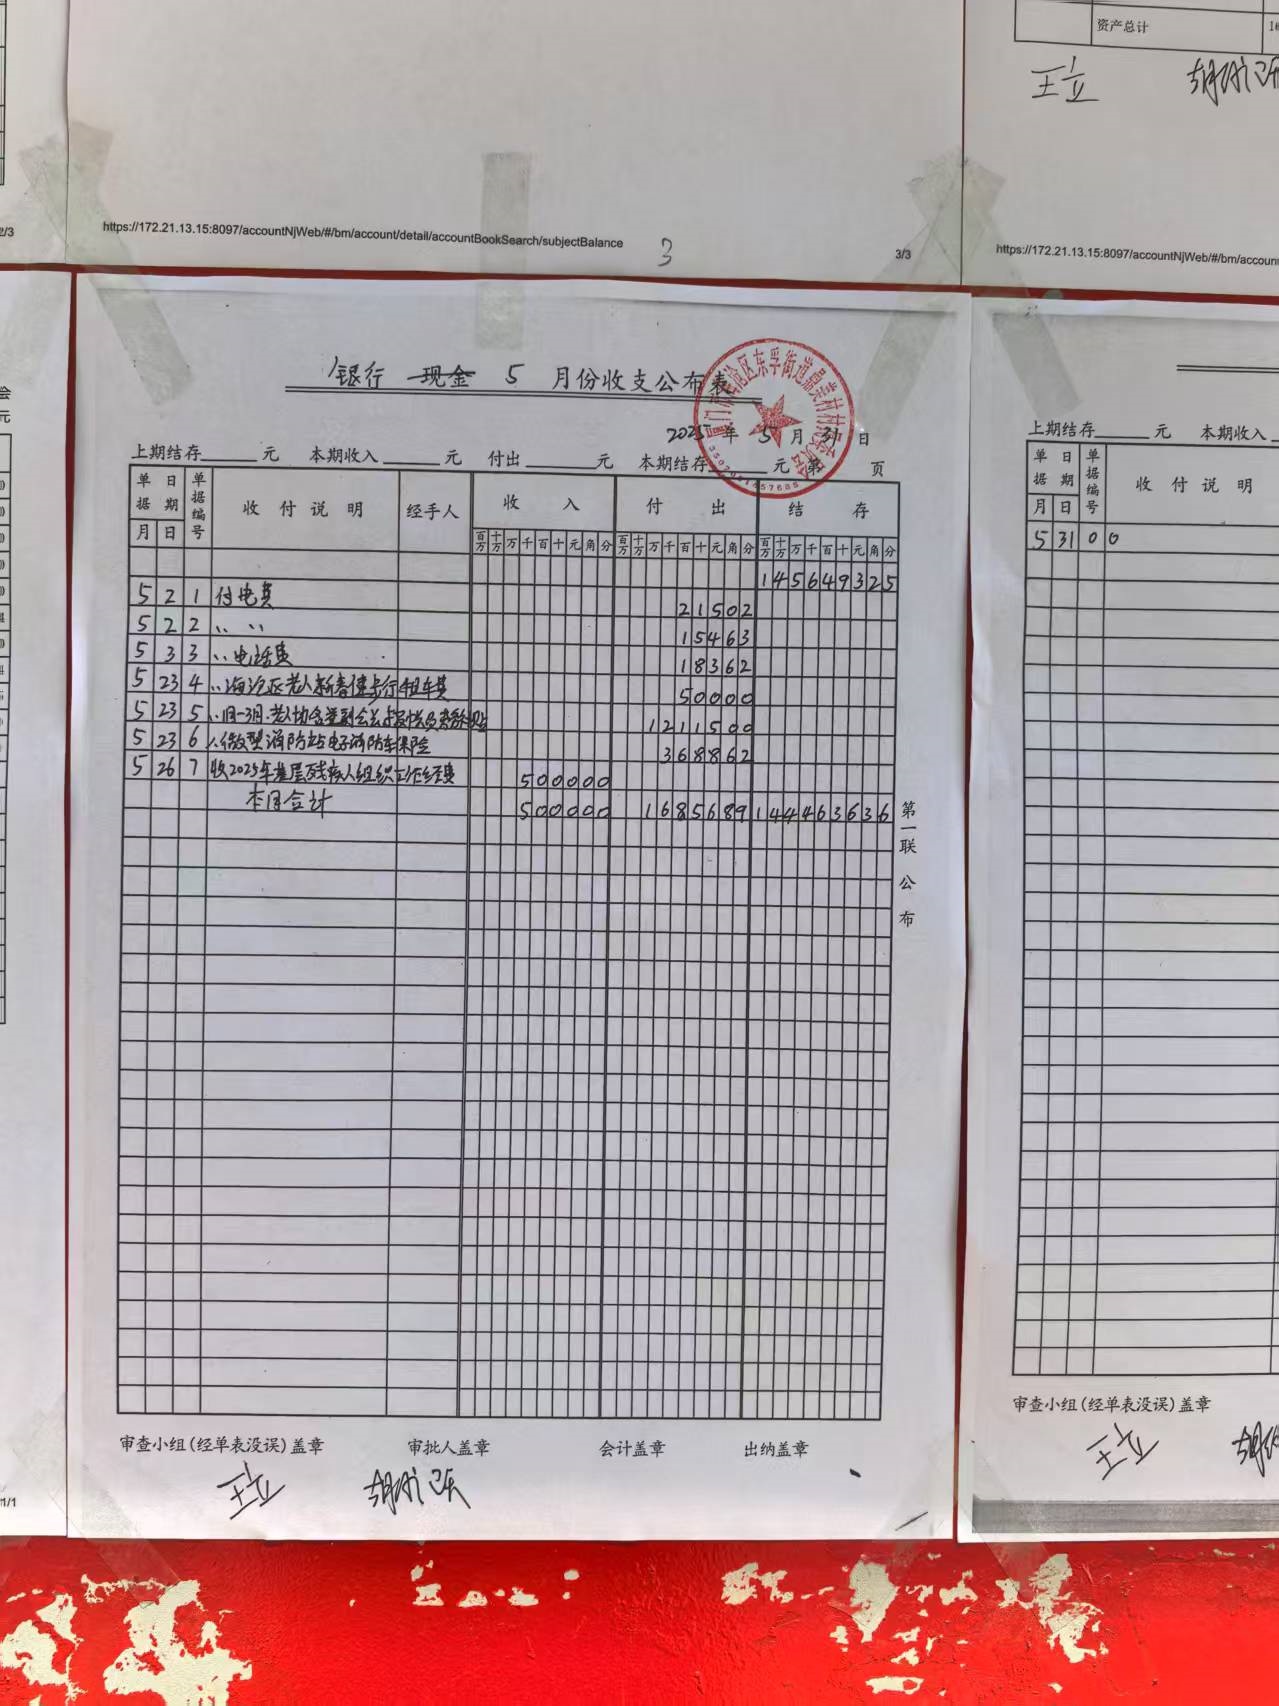 资产总计
王立
2/3
https://172.21.13.15:8097/accountNjWeb/#/bm/account/detail/accountBookSearch/subjectBalance
3
3/3
https://172.21.13.15:8097/accountNjWeb/#/bm/accoun
会
元
银行 现金 5 月份收支公布表
2025 年 5 月 31 日
上期结存 元 本期收入 元 付出 元 本期结存 元 第 页
单据 日期 单据编号 收付说明 经手人 收入 付出 结存
月 日 百万 十万 万 千 百 十 元 角 分 百万 十万 万 千 百 十 元 角 分 百万 十万 万 千 百 十 元 角 分
145649325
5 2 1 付电费 21502
5 2 2 〃 〃 15463
5 3 3 〃电话费 18362
5 23 4 〃海沧区老人新春健步行租车费 50000
5 23 5 1211500
5 23 6 〃微型消防站电子消防车保险 368862
5 26 7 收2025年基层残疾人组织工作经费 500000
本月合计 500000 1685689 144463636
第一联 公布
审查小组(经单表没误)盖章 审批人盖章 会计盖章 出纳盖章
王立
1/1
上期结存 元 本期收入
单据 日期 单据编号 收付说明
月 日
5 31 0 0
审查小组(经单表没误)盖章
王立